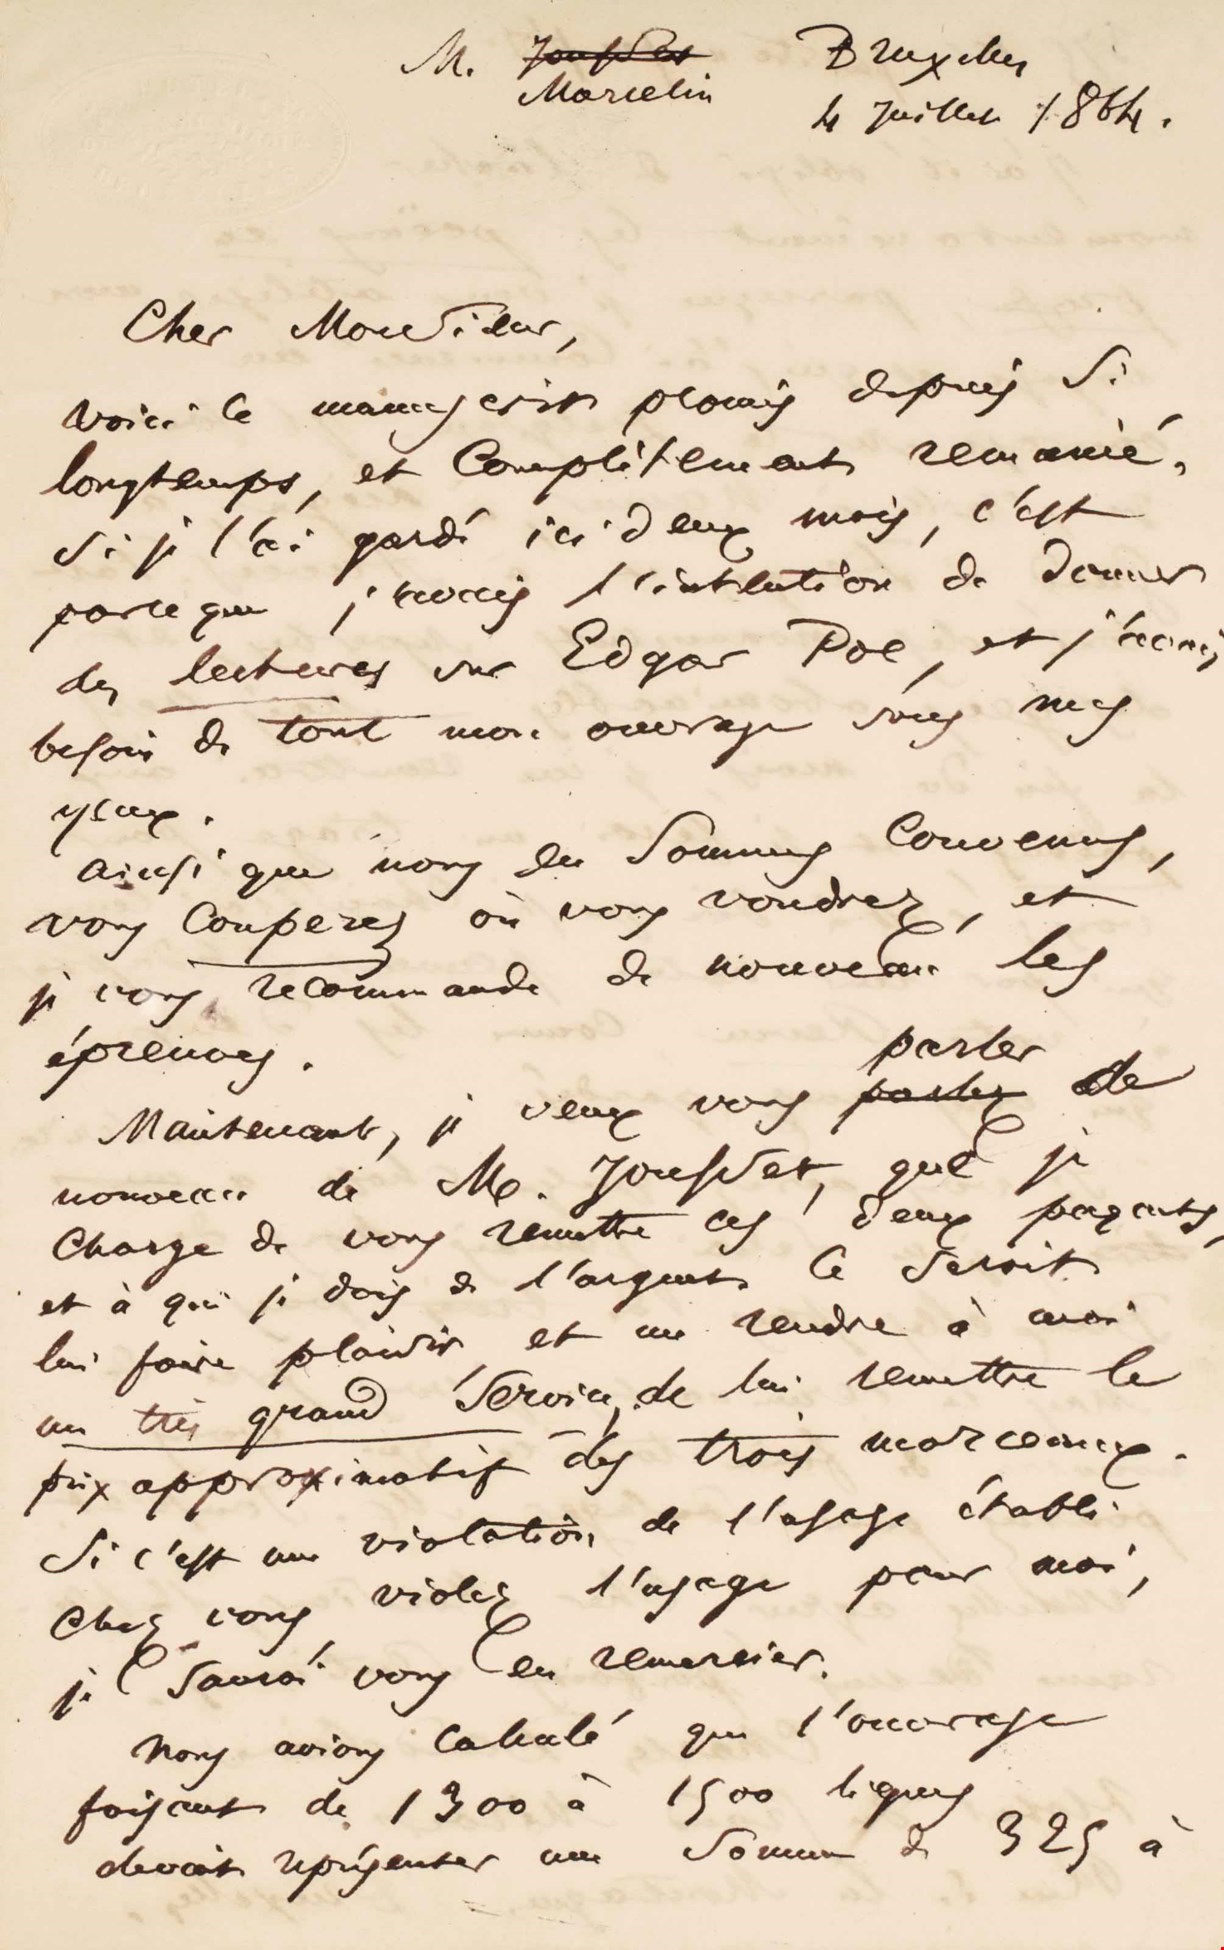 M. Jousset Bruxelles
Marcelin
4 Juillet 1864.
Cher Monsieur,
voici le manuscrit promis depuis si
longtemps, et complètement remanié.
Si je l'ai gardé ici deux mois, c'est
parce que j'avais l'intention de donner
des lectures sur Edgar Poe, et j'avais
besoin de tout mon ouvrage sous mes
yeux.
Ainsi que nous en sommes convenus,
vous couperez où vous voudrez, et
je vous recommande de nouveau les
épreuves.
parler
Maintenant, je veux vous parlez de
nouveau de M. Jousset, que je
charge de vous remettre ces deux paquets,
et à qui je dois de l'argent. Ce serait
lui faire plaisir et me rendre à moi
un très grand service, de lui remettre le
prix approximatif des trois morceaux.
Si c'est une violation de l'usage établi
chez vous, violez l'usage pour moi,
je saurai vous en remercier.
Nous avions calculé que l'ouvrage
faisant de 1300 à 1500 lignes
devait représenter une somme de 325 à